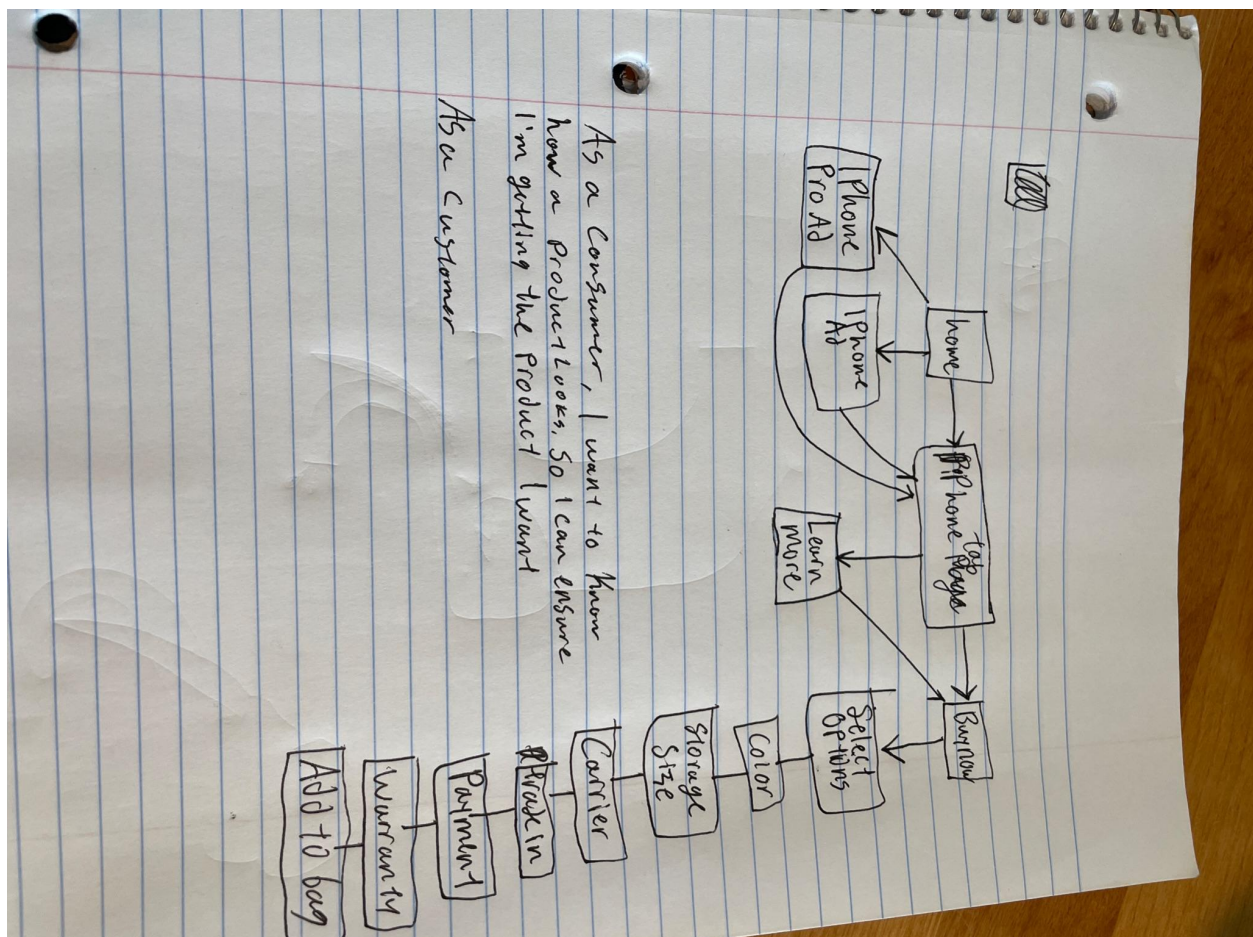 home
iPhone
tab
page
Buy now
iPhone
Pro Ad
iPhone
Ad
Learn
More
Select
Options
Color
Storage
Size
Carrier
Trade in
Payment
Warranty
Add to bag
As a Consumer, I want to know
how a product looks, so I can ensure
I'm getting the product I want
As a Customer